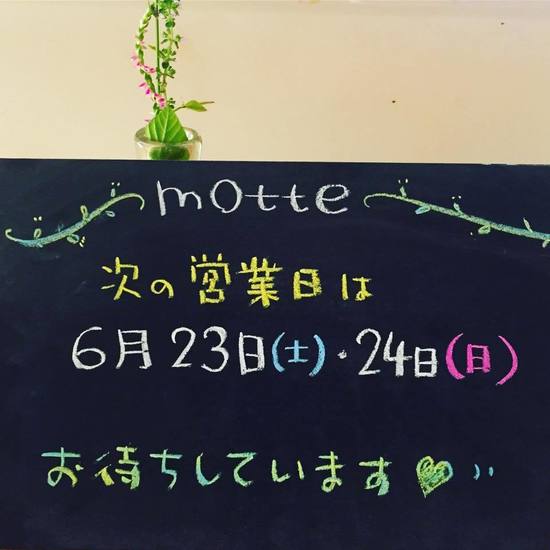 motte
次の営業日は
6月23日(土)・24日(日)
お待ちしています